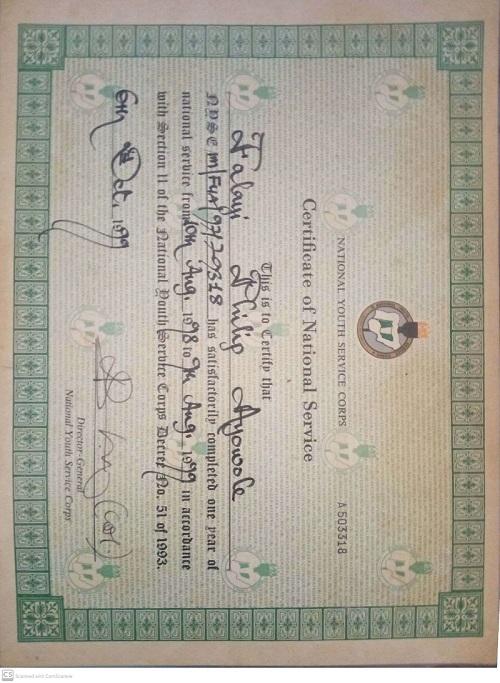 A 503318
NATIONAL YOUTH SERVICE CORPS
Certificate of National Service
This is to Certify that
Falayi Philip Ayowole
NYSC M/FYA/97/20318 has satisfactorily completed one year of
national service from 10th Aug. 1998 to 9th Aug. 1999 in accordance
with Section 11 of the National Youth Service Corps Decree No. 51 of 1993.
6th Oct, 1999
Director-General
National Youth Service Corps
CS Scanned with CamScanner